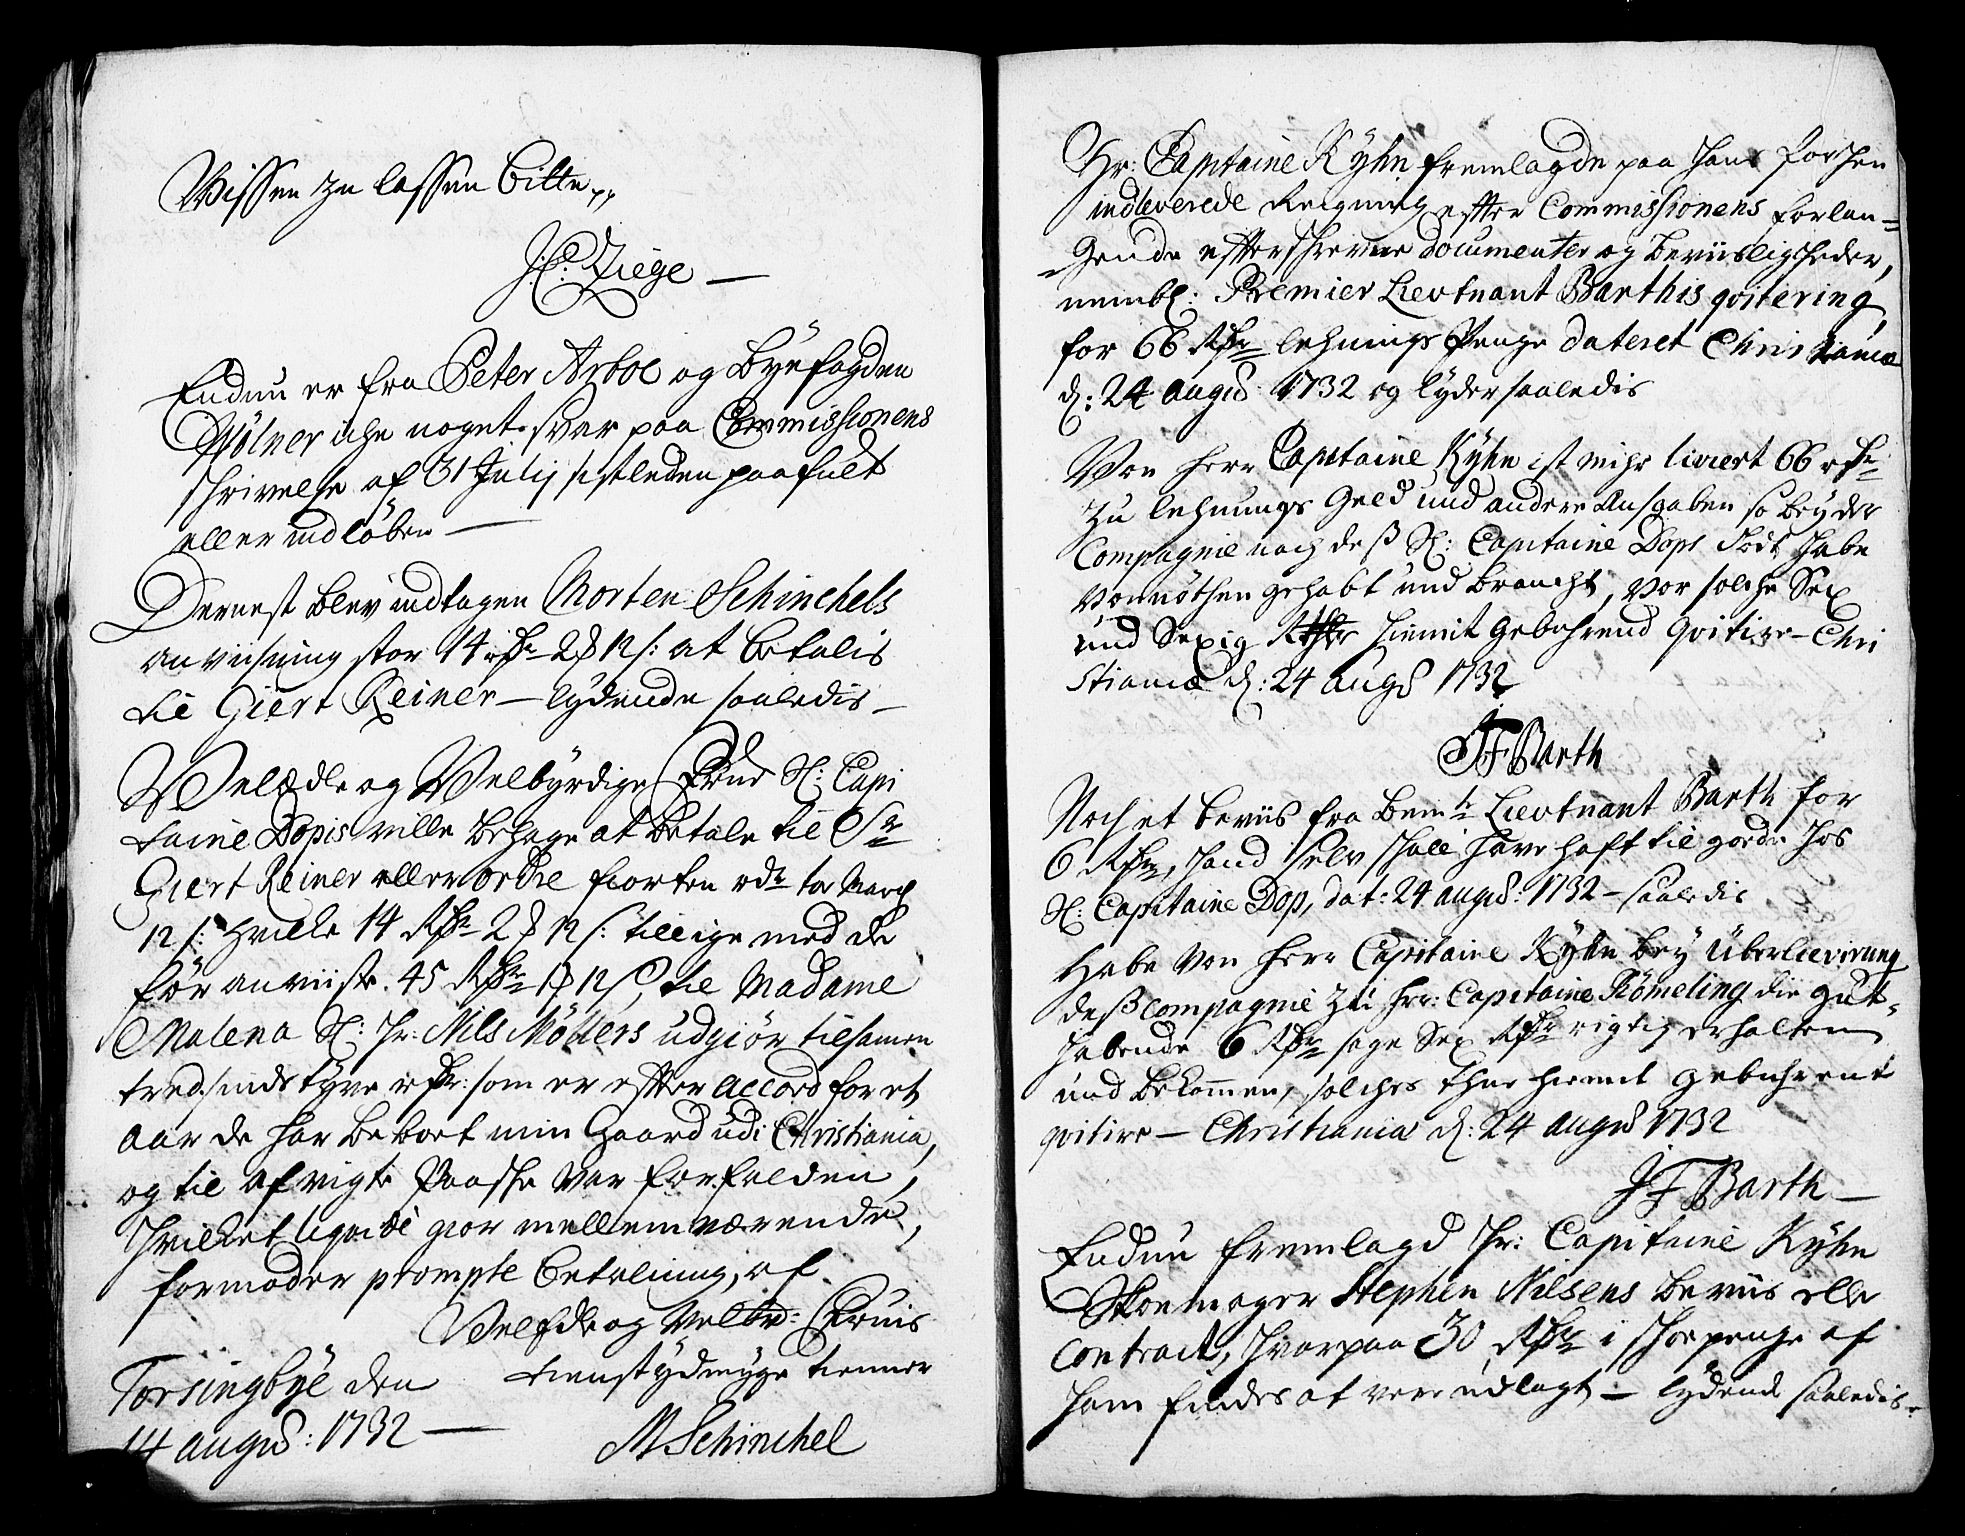 Wissen zu lassen bitte
J: C: Ziege —
Endnu er fra Peter Arboe og byefogden
Wölner iche noget svar paa Commissionens
schrivelse af 31 Julij sistleden paafult
eller indløben —
Dernest blev indtagen Morten Schinchels
anviisning stor 14 rdr 2 12 s: at betalis
til Giert Reiner — lydende saaledis —
Velædle og Velbyrdige Frue Sl: Capi
taine Dopis ville behage at betale til Sr
Giert Reiner eller ordre fiorten rdr to March
12 s: hvilke 14 Rdr 2 12 s: tillige med de
før anviiste 45 Rdr 1 12 s, til Madame
Malena Sl: Hr: Nils Möllers udgiør tilsamen
tredsindstyve rdr: som er efter accord for et
aar de har beboet min Gaard udi Christiania,
og til afvigte Paasche var forfalden,
hvilket liqvide giør mellemværende,
formoder prompte betalning, af
Velædle og Velbr: Fruis
tienstydmyge tienner
Torsingbye den
14 augus: 1732 —
M Schinchel
Hr: Capitaine Kyhn fremlagde paa hans forhen
indleverede Reigning efter Commissionens forlan=
=gende efterschrevne documenter og beviisligheder,
nembl: Premier Lieutnant Barthis qvitering
for 66 Rdr lehnings Penge dateret Christiania
d: 24 augus 1732 og lyder saaledis
Von herr Capitaine Kyhn ist mihr liviert 66 rdr
zu lehnungs Geld und andere Ausgaben so bey der
Compagnie nach deß Sl: Capitaine Dops Todt habe
vonnöthen gehabt und braucht, vor solche Sex
und Sexig Rthlr hiemit gebuhrend qvitire — Chri
stiania d: 24 augus 1732
JF Barth
Noch et beviis fra bemte Lieutnant Barth for
6 Rdr, hand selv schall have haft til gode hos
Sl: Capitaine Dop, dat: 24 augus: 1732 — saaledis
Habe von herr Capitaine Kyhn bey Überlievirung
deß compagnie zu hrr: Capitaine Römeling die gut=
habende 6 Rdr sage Sex Rdr rigtig erhalten
und bekommen, solches thue hiemit gebuhrent
qvitire — Christiania d: 24 augus 1732
J F Barth —
Endnu fremlagd Hr: Capitaine Kyhn
Skoemager Stephen Nilsens beviis elle
contract, hvorpaa 30 Rdr i schoepenge af
ham findes at vere udlagt — lydende saaledis.